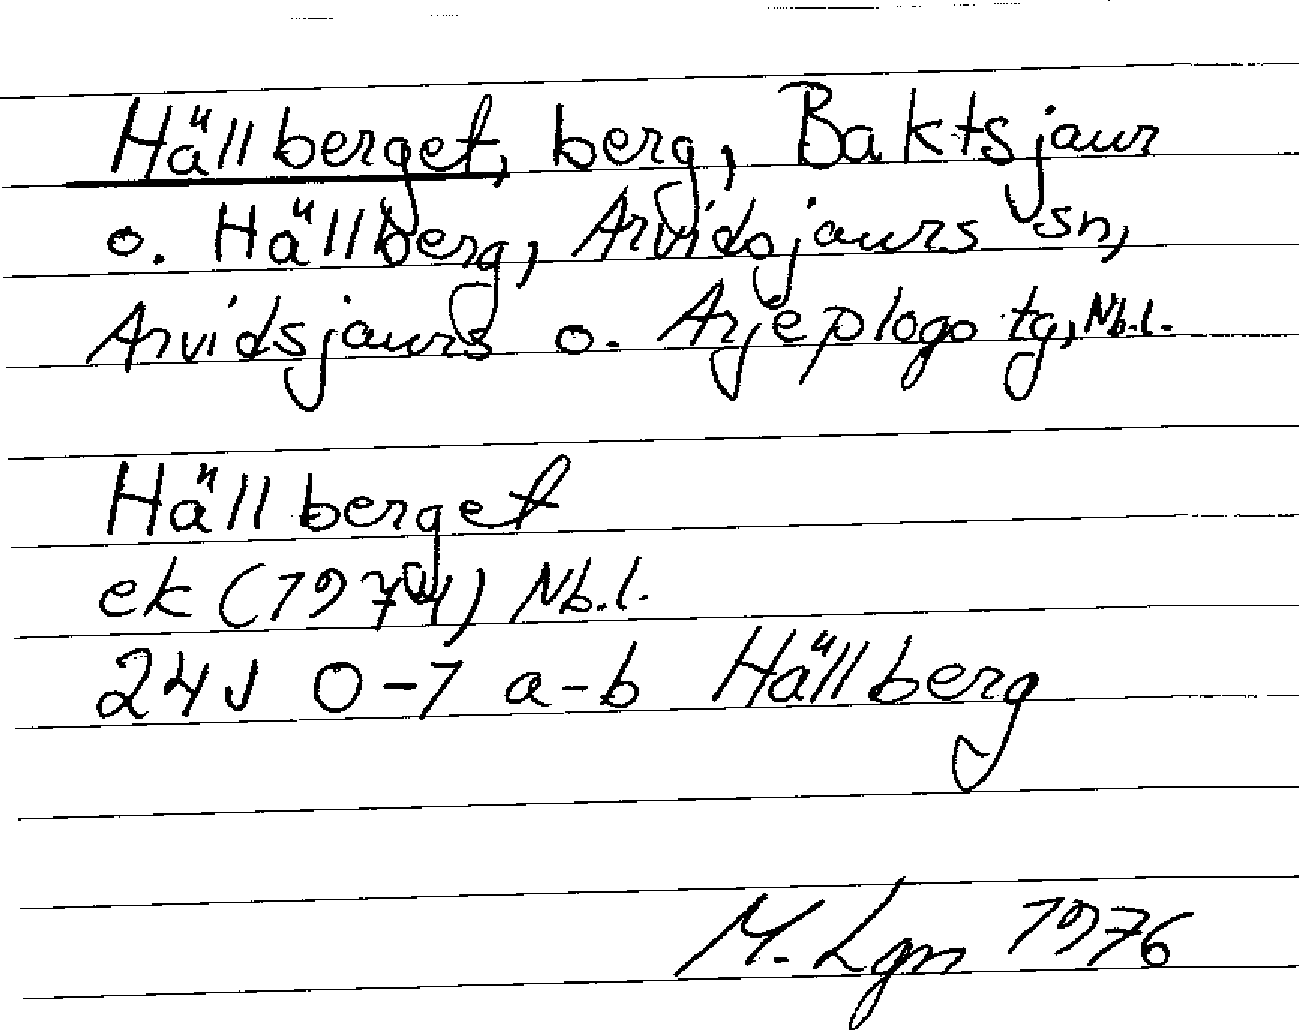 Hällberget, berg, Baktsjaur
o. Hällberg, Arvidsjaurs sn,
Arvidsjaurs o. Arjeplogo tg, Nb.l.
Hällberget
ek (1974) Nb.l.
24J 0-1 a-b Hällberg
M. Lgn 1976